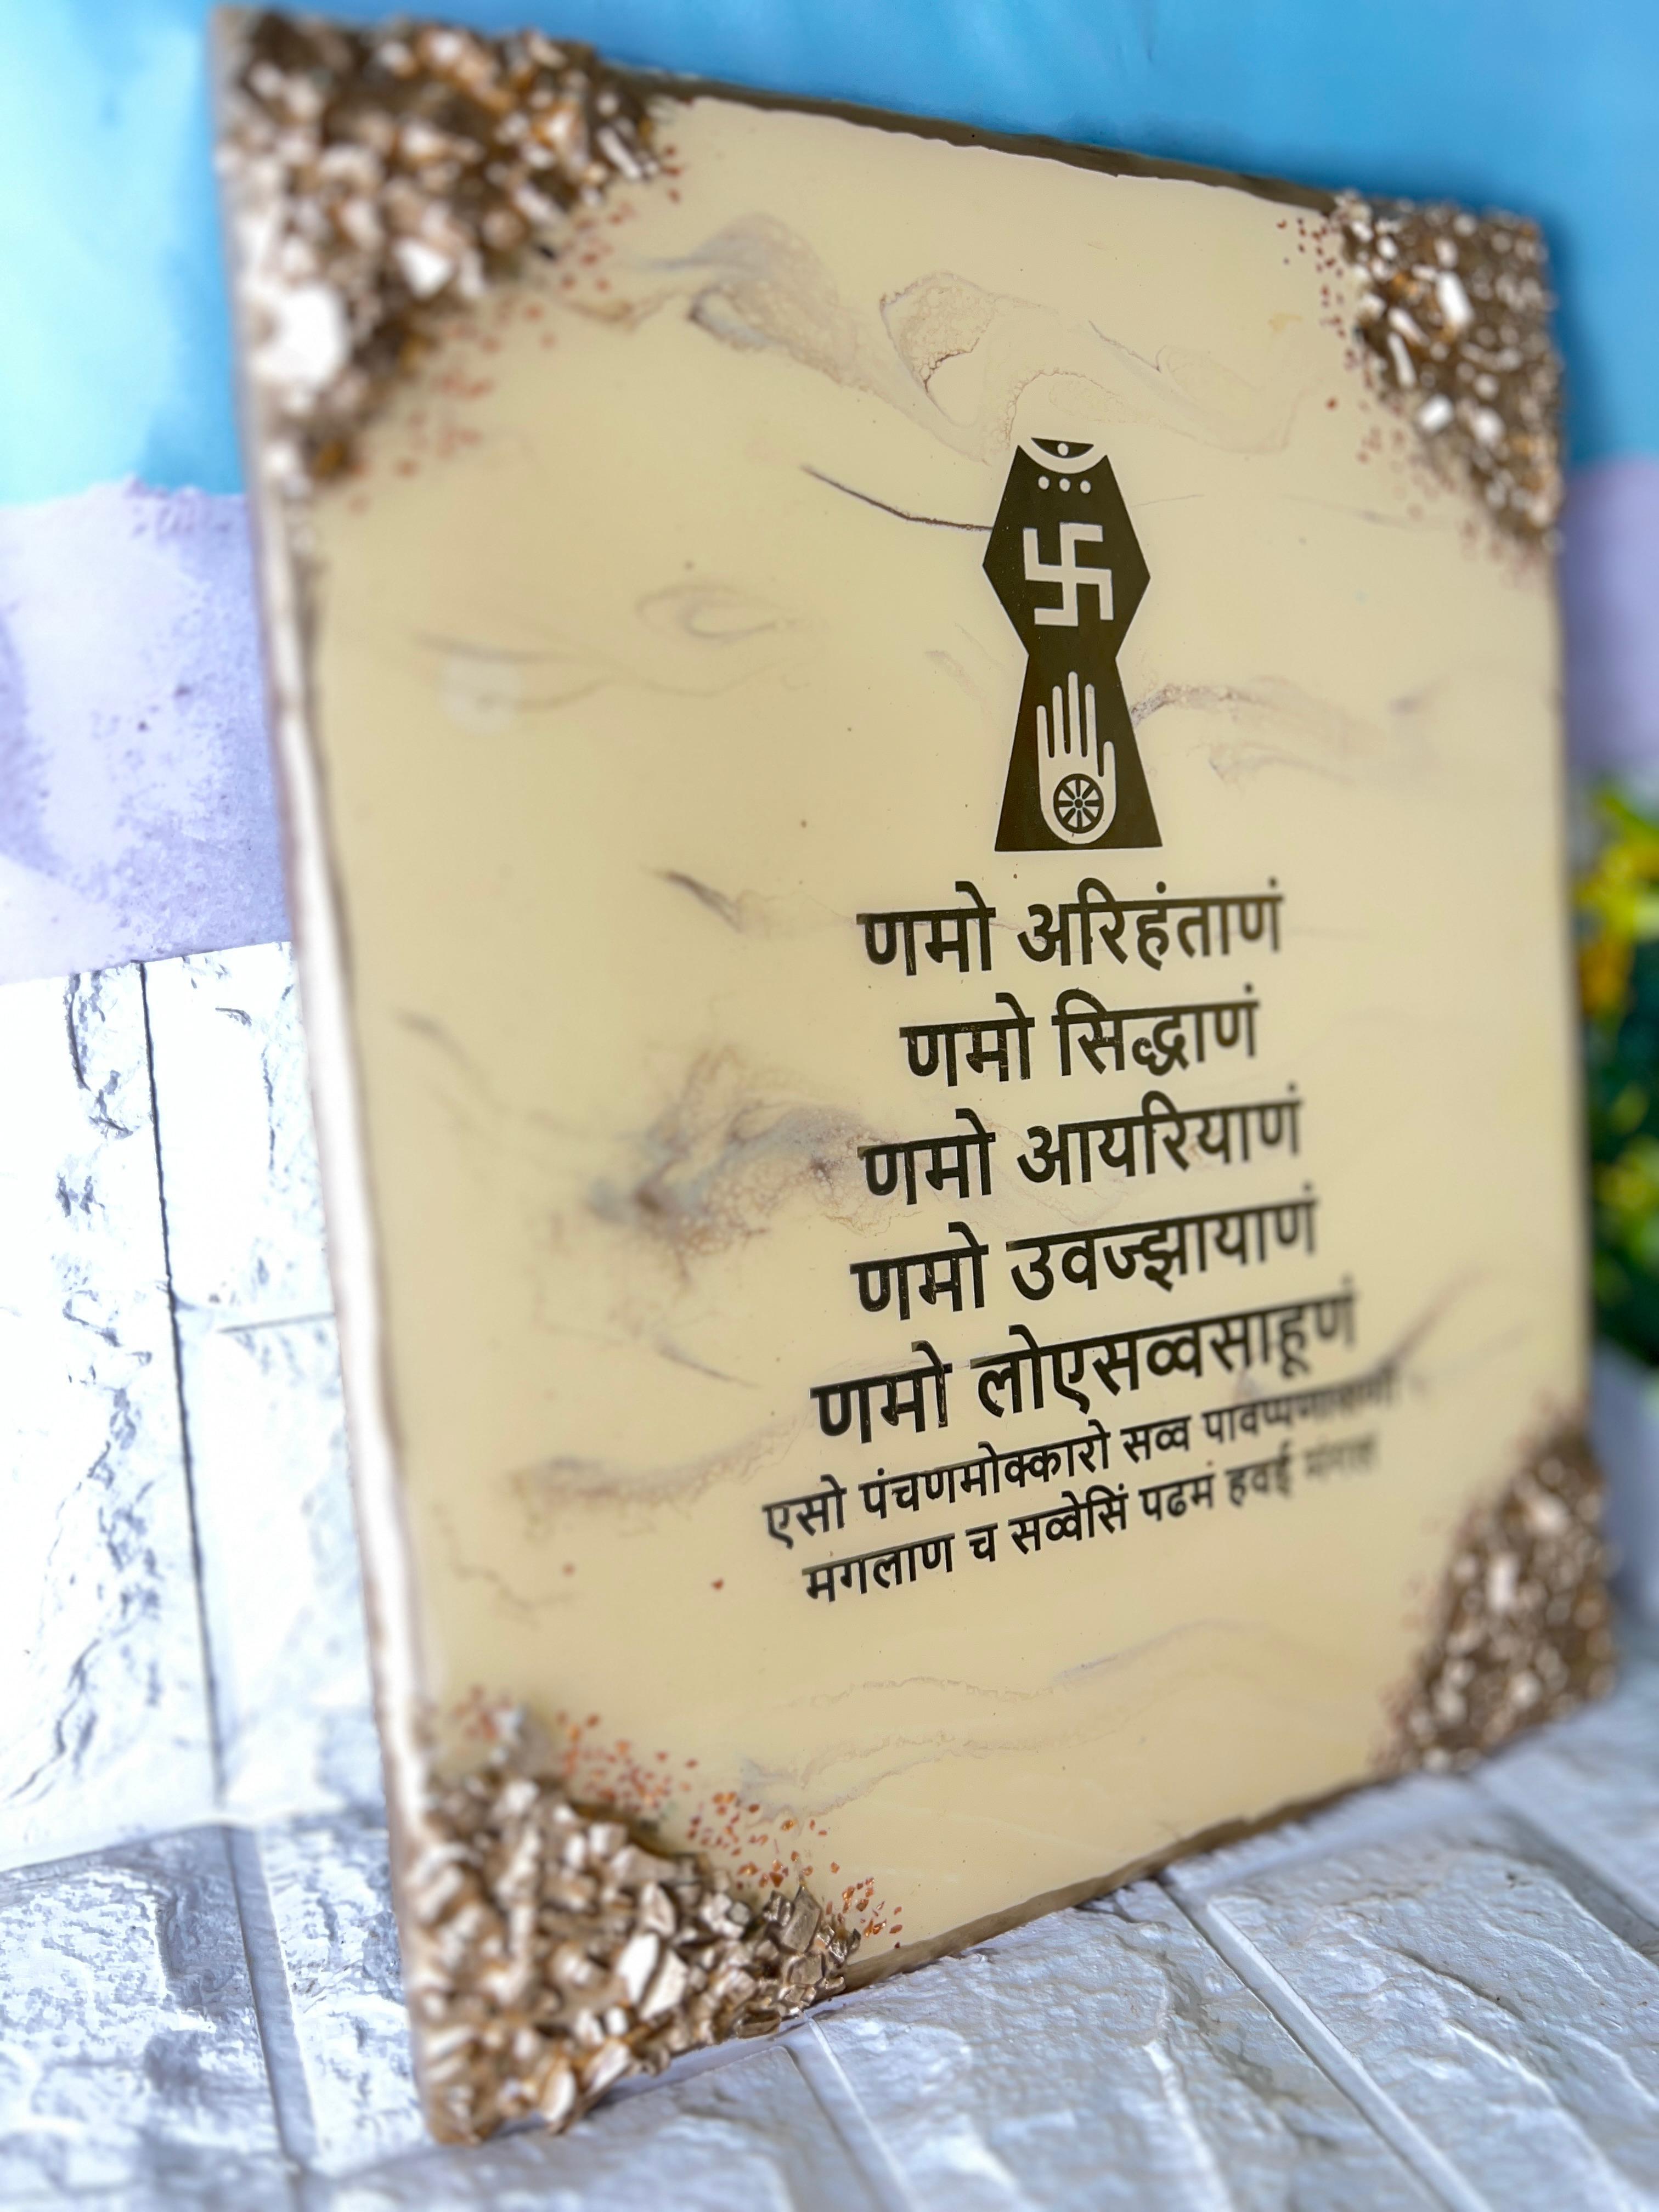 णमो अरिहंताणं
णमो सिद्धाणं
णमो आयरियाणं
णमो उवज्झायाणं
णमो लोएसव्वसाहूणं
एसो पंचणमोक्कारो सव्व
मगलाण च सव्वेसिं पढमं हवई